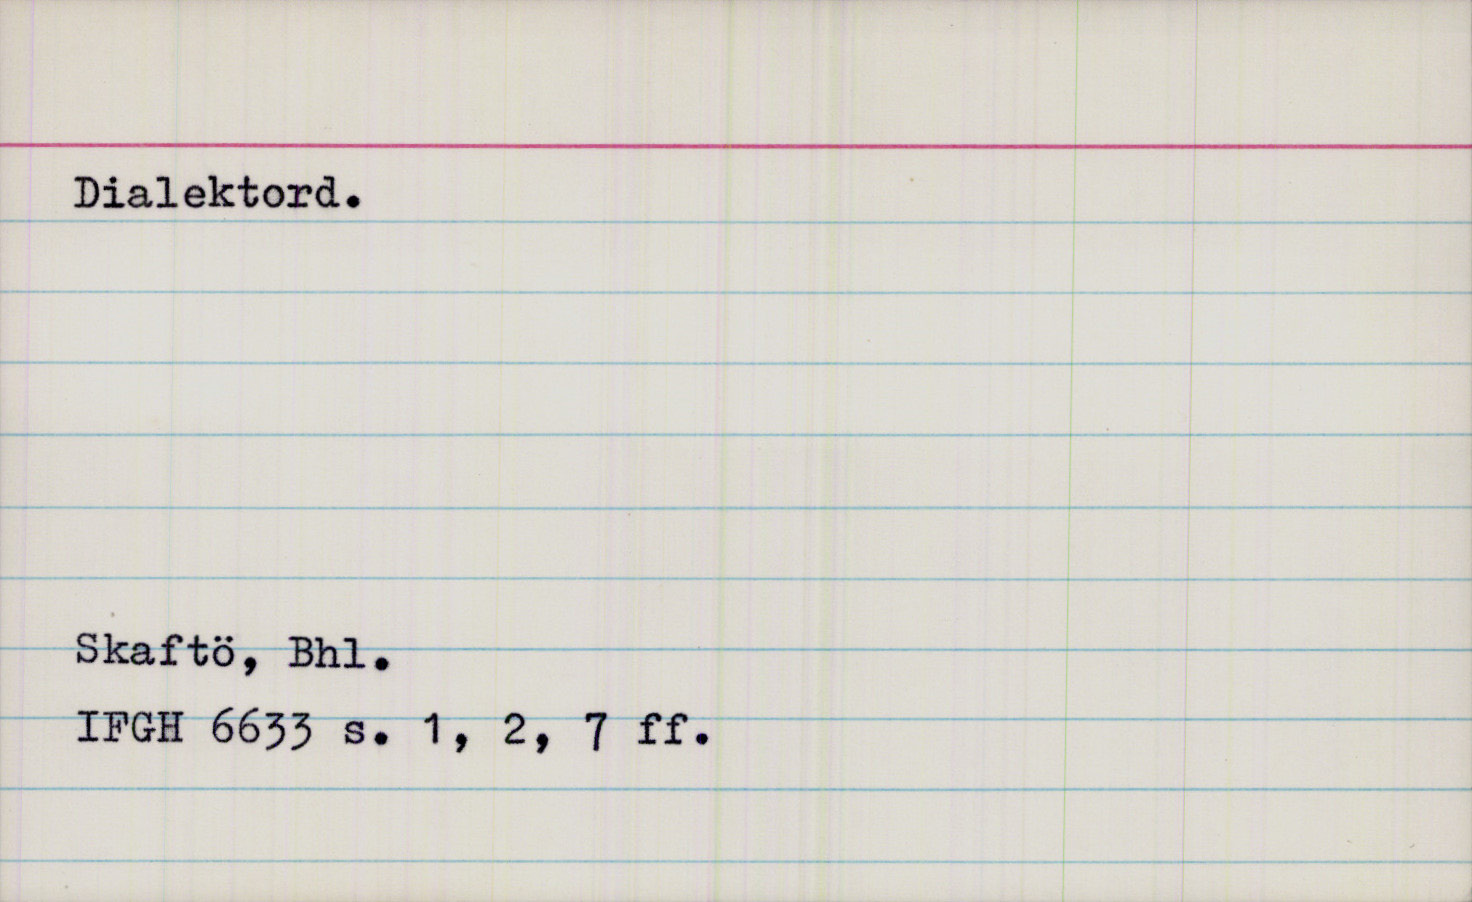 Dialektord.
Skaftö, Bhl.
IFGH 6633 s. 1, 2, 7 ff.